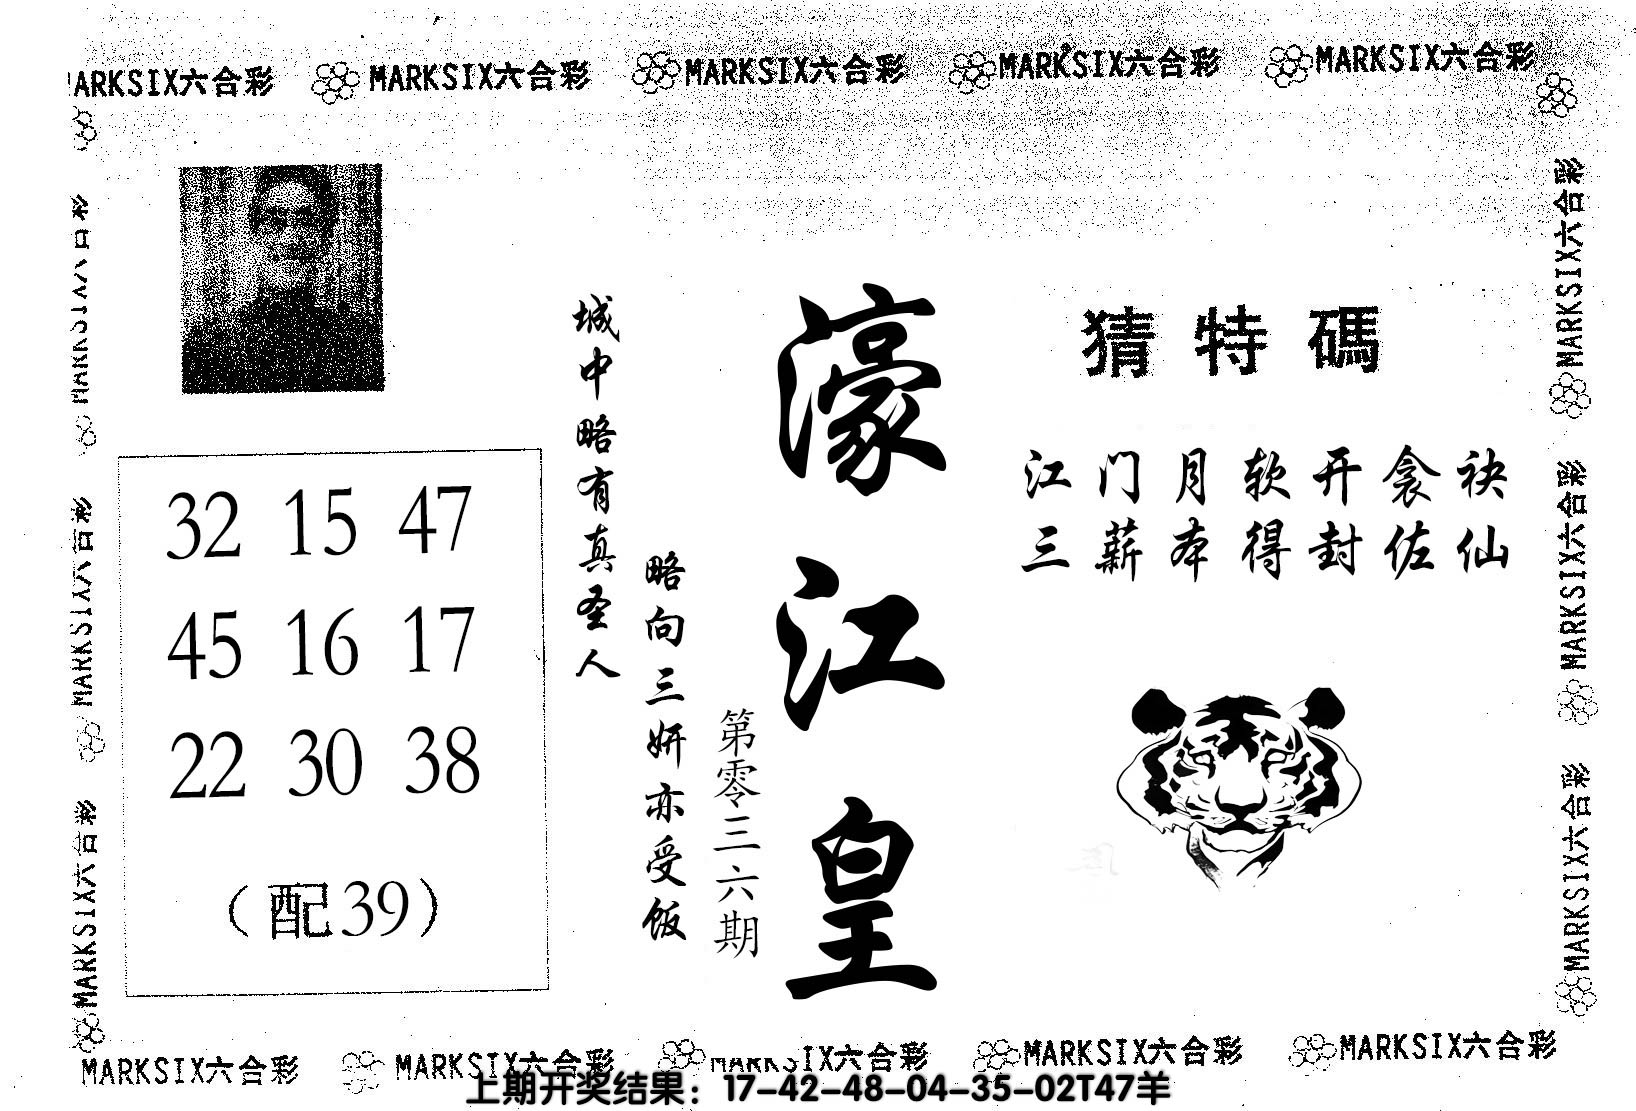 MARKSIX六合彩 MARKSIX六合彩 MARKSIX六合彩 MARKSIX六合彩 MARKSIX六合彩
猜特碼
江门月软开衾袂
三薪本得封佐仙
濠江皇
第零三六期
城中略有真圣人
略向三妍亦受饭
32 15 47
45 16 17
22 30 38
（配39）
MARKSIX六合彩
MARKSIX六合彩
MARKSIX六合彩
MARKSIX六合彩
MARKSIX六合彩
MARKSIX六合彩
MARKSIX六合彩 MARKSIX六合彩 MARKSIX六合彩 MARKSIX六合彩 MARKSIX六合彩
上期开奖结果：17-42-48-04-35-02T47羊